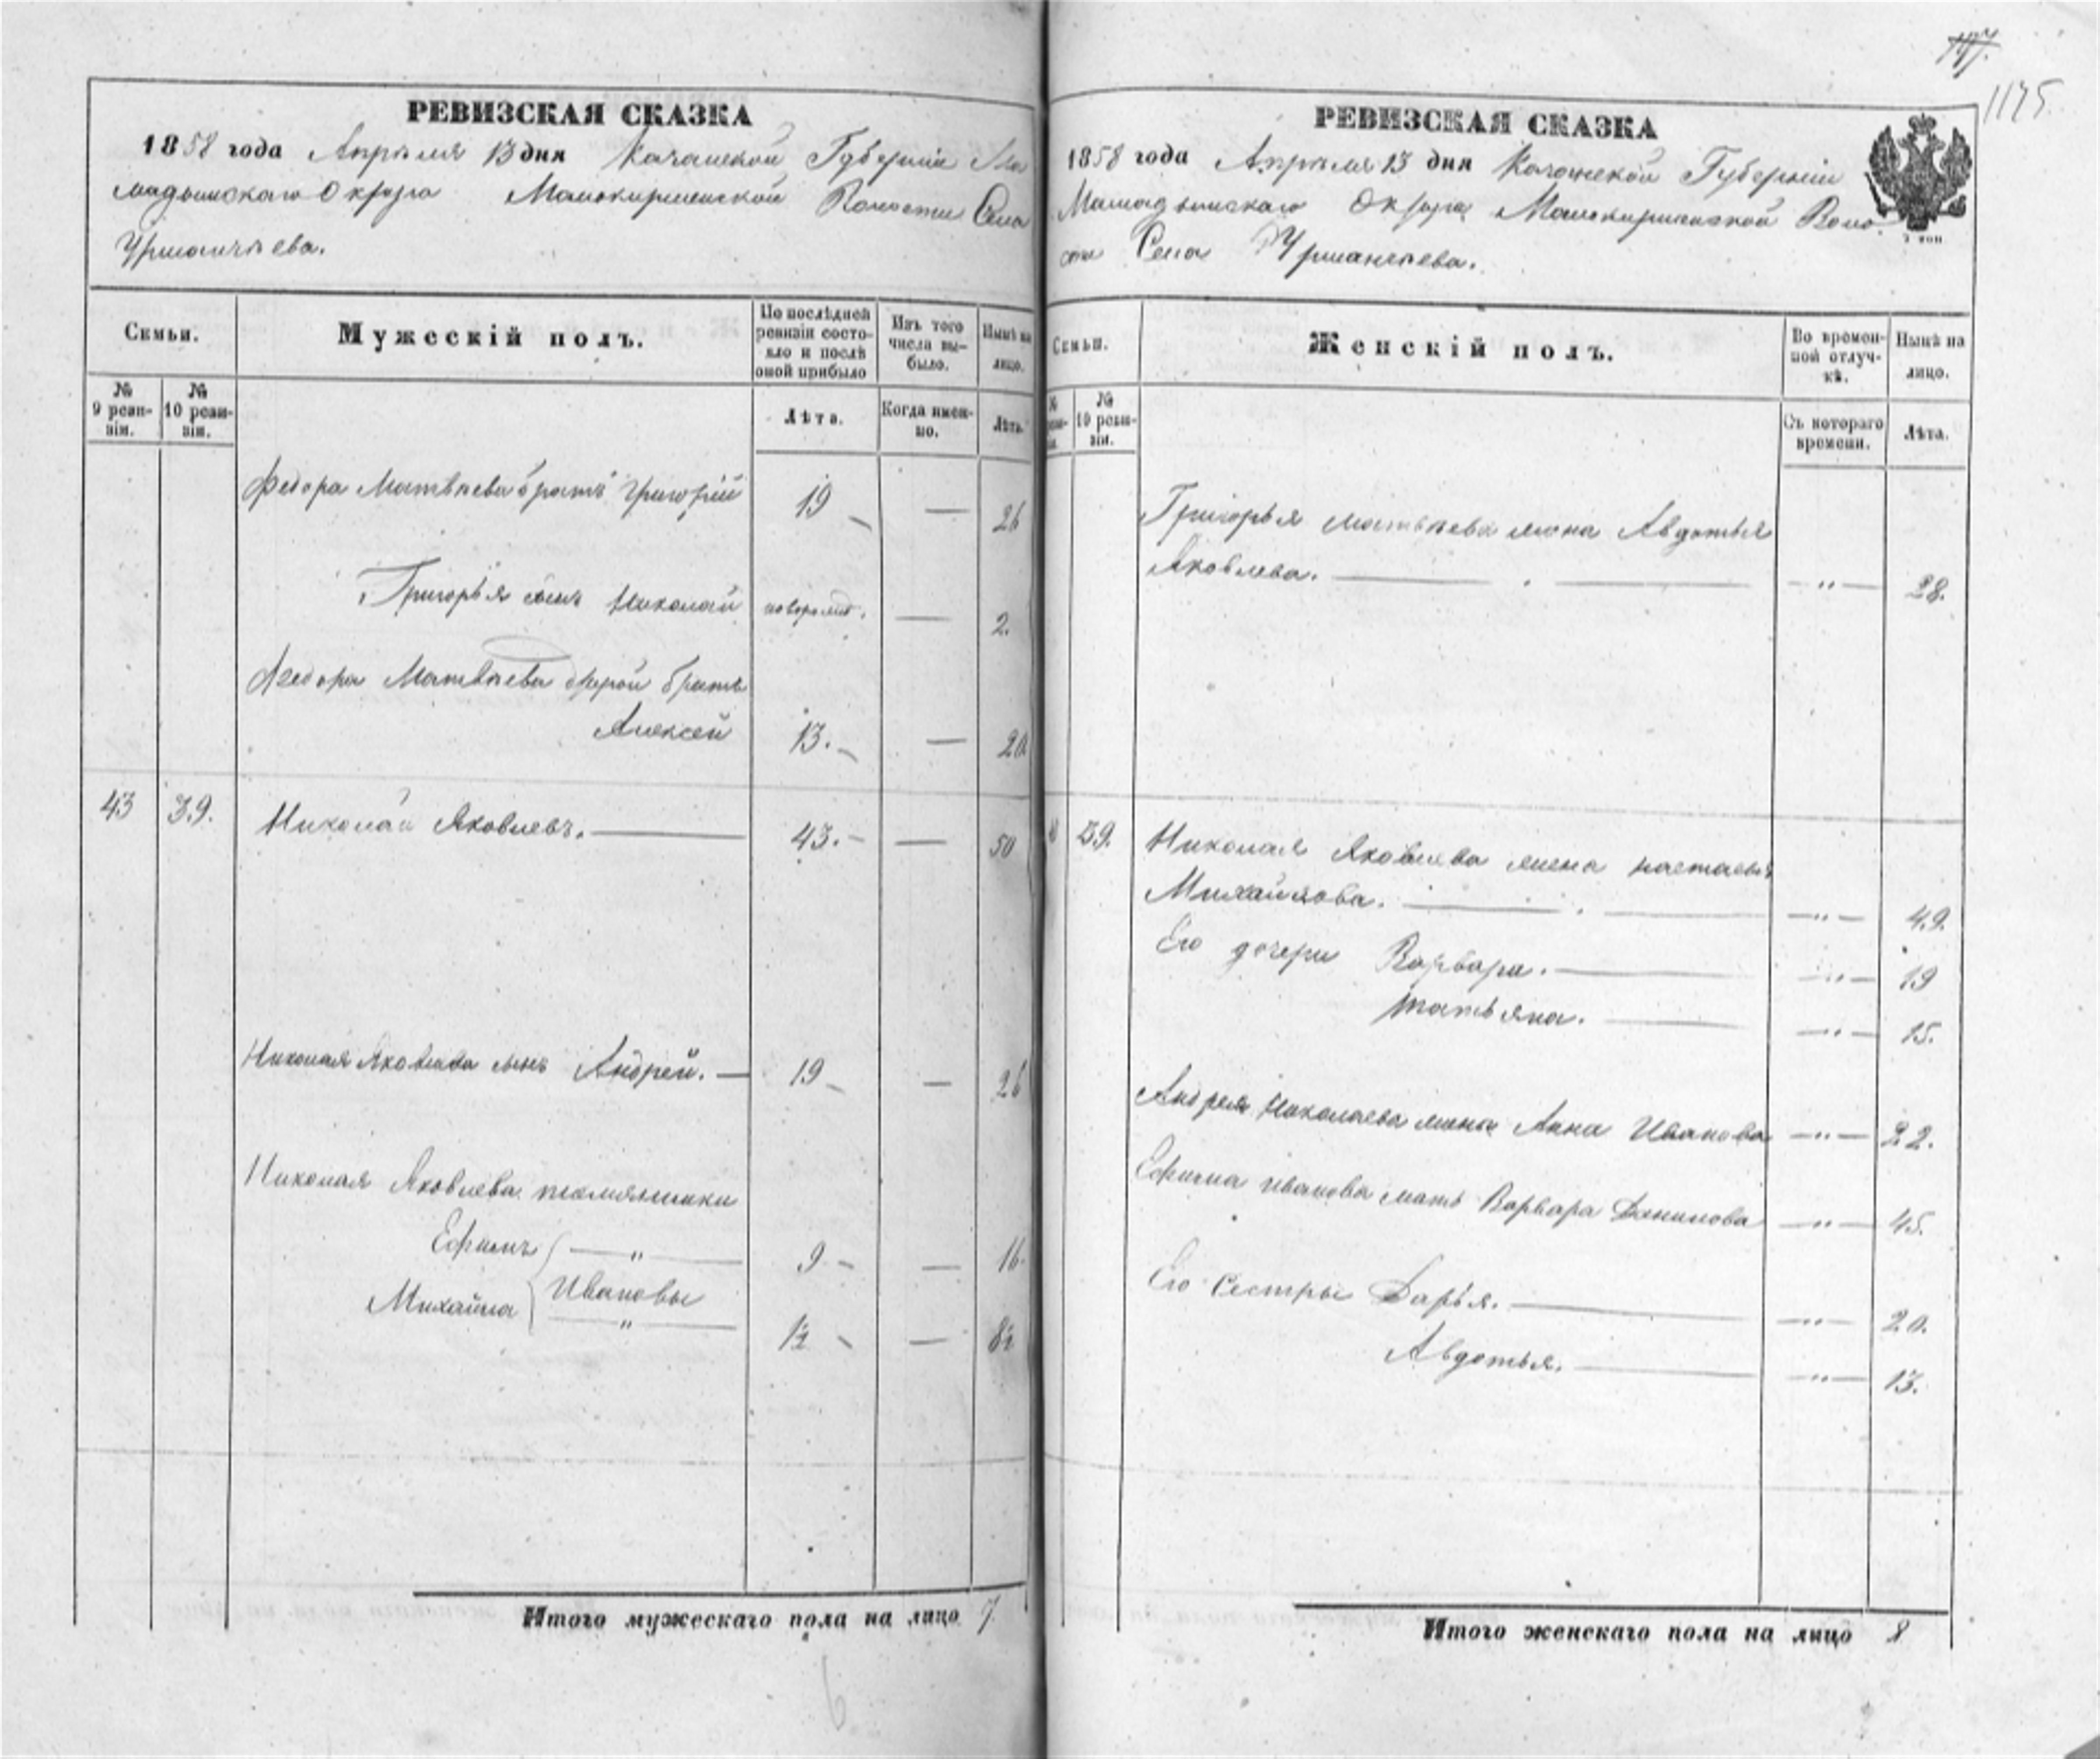 147.
1175
РЕВИЗСКАЯ СКАЗКА
1858 года Апрѣля 13 дня Казанской Губерніи Ма
мадышскаго Округа Масокирменской Волости Села
Урманчѣева.
Семьи.
Мужескій полъ.
По послѣдней ревизіи состо-
яло и послѣ
оной прибыло
Изъ того
числа вы-
было.
Нынѣ на
лицо.
№
9 реви-
зіи.
№
10 реви-
зіи.
Лѣта.
Когда имен-
но.
Лѣта.
Федора Матвѣева братъ Григорій 19 — 26
Григорья сынъ Николай новорожд. — 2.
Федора Матвѣева другой братъ
Алексей 13. — 20
43 39. Николай Яковлевъ. 43. — 50
Николая Яковлева сынъ Андрей. — 19 — 26
Николая Яковлева племянники
Ефимъ — " — 9 — 16.
Ивановы
Михайла — " — 1½ — 8½
Итого мужескаго пола на лицо 7.
6
РЕВИЗСКАЯ СКАЗКА
1858 года Апрѣля 13 дня Казанской Губерніи
Мамадышскаго Округа Масокирменской Воло
сти Села Урманчѣева.
Семьи.
Женскій полъ.
Во времен-
ной отлуч-
кѣ.
Нынѣ на
лицо.
№
10 реви-
зіи.
Съ котораго
времени.
Лѣта.
Григорья Матвѣева жена Авдотья
Яковлева. — " — 28.
39. Николая Яковлева жена Настасья
Михайлова. — " — 49.
Его дочери Варвара. — " — 19
Татьяна. — " — 15.
Андрея Николаева жена Анна Иванова — " — 22.
Ефима Иванова мать Варвара Данилова — " — 45.
Его Сестры Дарья. — " — 20.
Авдотья. — " — 13.
Итого женскаго пола на лицо 8